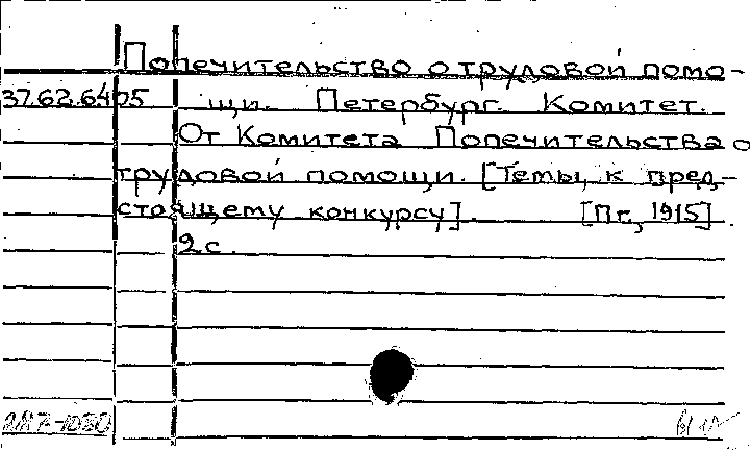 Попечительство о трудовой помо-
37.62.6405 щи. Петербург. Комитет.
От Комитета Попечительства о
трудовой помощи. [Темы к пред-
стоящему конкурсу] [Пг., 1915].
2 с.